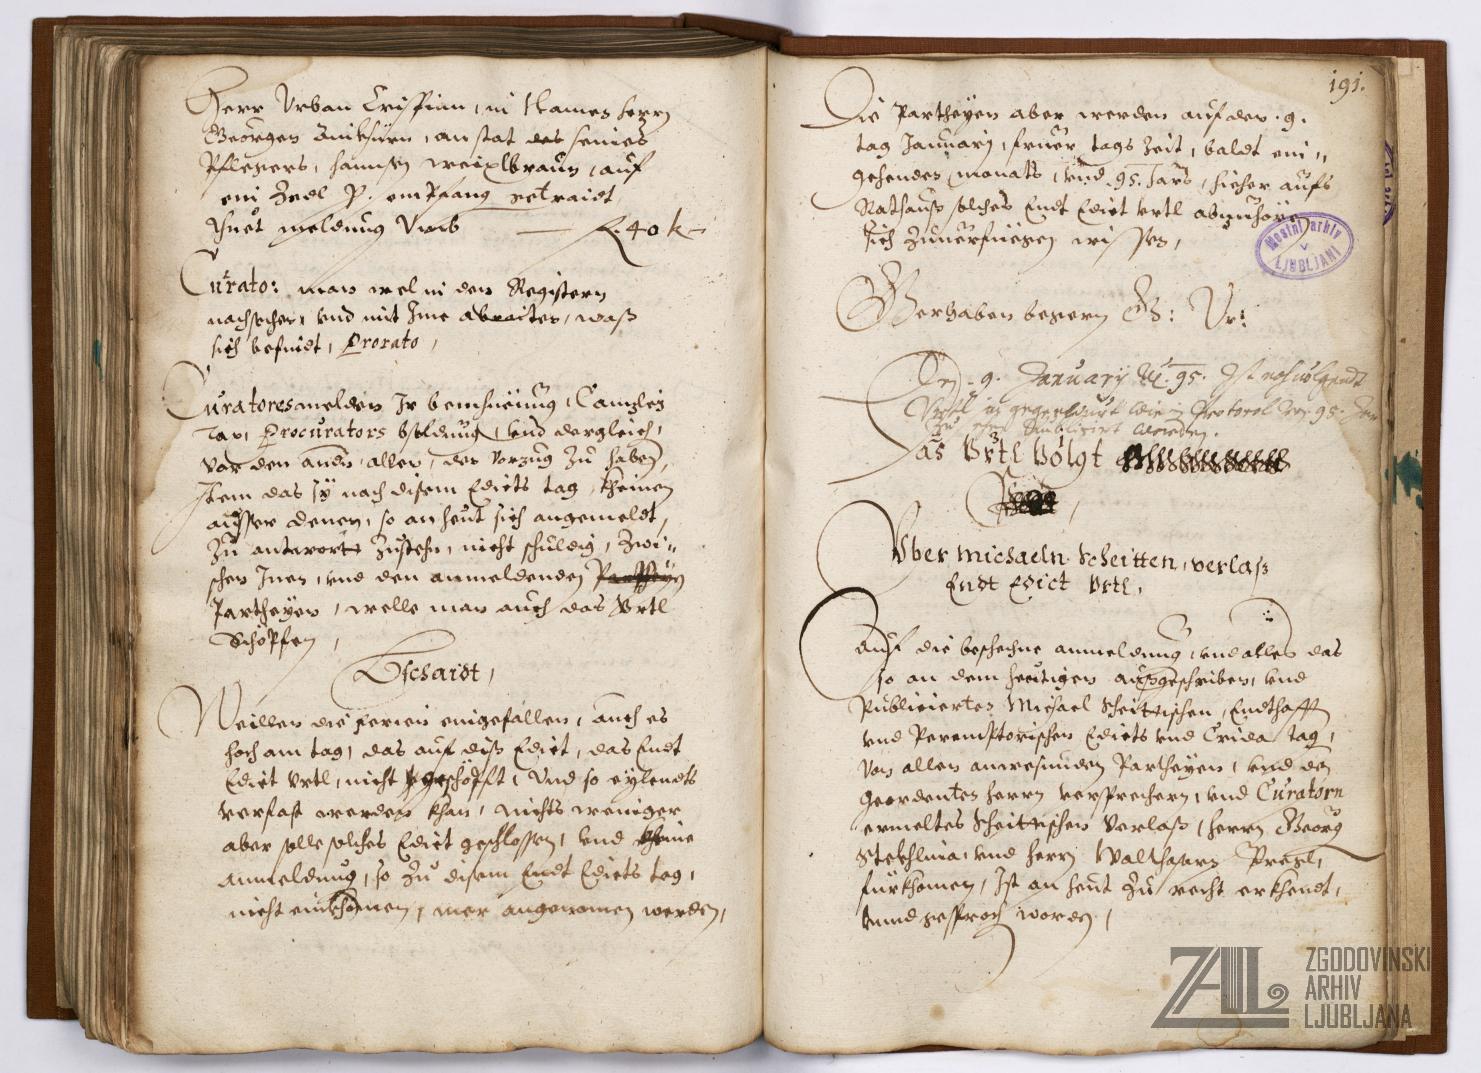 Herr Urban Crispian, in Namen herrn
Georgen , anstat des seines
Pflegers, hannsen weixlbraun, auf
ein Zedl P. empfang getraidt
thuet meldung Umb — f. 40 k —
Curator: man wel in den Registern
nachsechen, vnd mit Ime abraiten, waß
sich befindt, Prorato,
Curatores melden Ir bemhueung, Canzley
Tax, Procurators bsoldung, vnd dergleich,
vor den andn allen, den Vorzug zu haben,
Item das sy nach disem Edicts tag, kheinen
ausser denen, so an heut sich angemeldt,
Zu antworten zustehn, nicht schuldig, Zwi„
schen Inen, vnd den anmeldenden
Partheyen, welle man auch das Vrtl
Schöpfen,
Bschaidt,
Weillen die ferien eingefallen, auch es
hoch am tag, das auf diß Edict, das Endt
Edict Vrtl, nicht geschöpft, Vnd so eylendts
verfast werden khan, nichts weniger
aber solle solches Edict geschlossen, vnd kheine
anmeldung, so Zu disem Endt Edicts tag,
nicht einkhomen, mer angenomen werden,
191.
Die Partheyen aber werden auf den .9.
tag Januarij, fruer tags Zeit, baldt ein„
gehenden monats, vnd .95. Jars, hieher aufs
Rathauß solches Endt Edict Vrtl
sich Zuuerfüegen wissen,
Gerhaben begern G: Vr:
Den .9. Januarij .95. Ist nachuolgendt
Vrtl Protocol .95.
Publiciert worden.
Das Vrtl Volgt
Vber michaeln Scheitten, verlaß
Endt Edict Vrtl,
Auf die beschechne anmeldung, vnd alles das
so an dem heutigen außgeschriben, vnd
Publicierten Michael Scheittischen, Endthafft
vnd Peremptorischen Edicts vnd Crida tag,
Von allen anwesunden Partheyen, vnd den
geordenten herrn versprechern, vnd Curatorn
ermeltes Scheittischen Verlaß, herrn Georg
Stekhlina, vnd herrn Walthasarn Prezl,
fürkhomen, Ist an heut Zu recht erkhendt,
vnnd gesproch worden,
Mestni arhiv
v
LJUBLJANI
ZAL
ZGODOVINSKI
ARHIV
LJUBLJANA